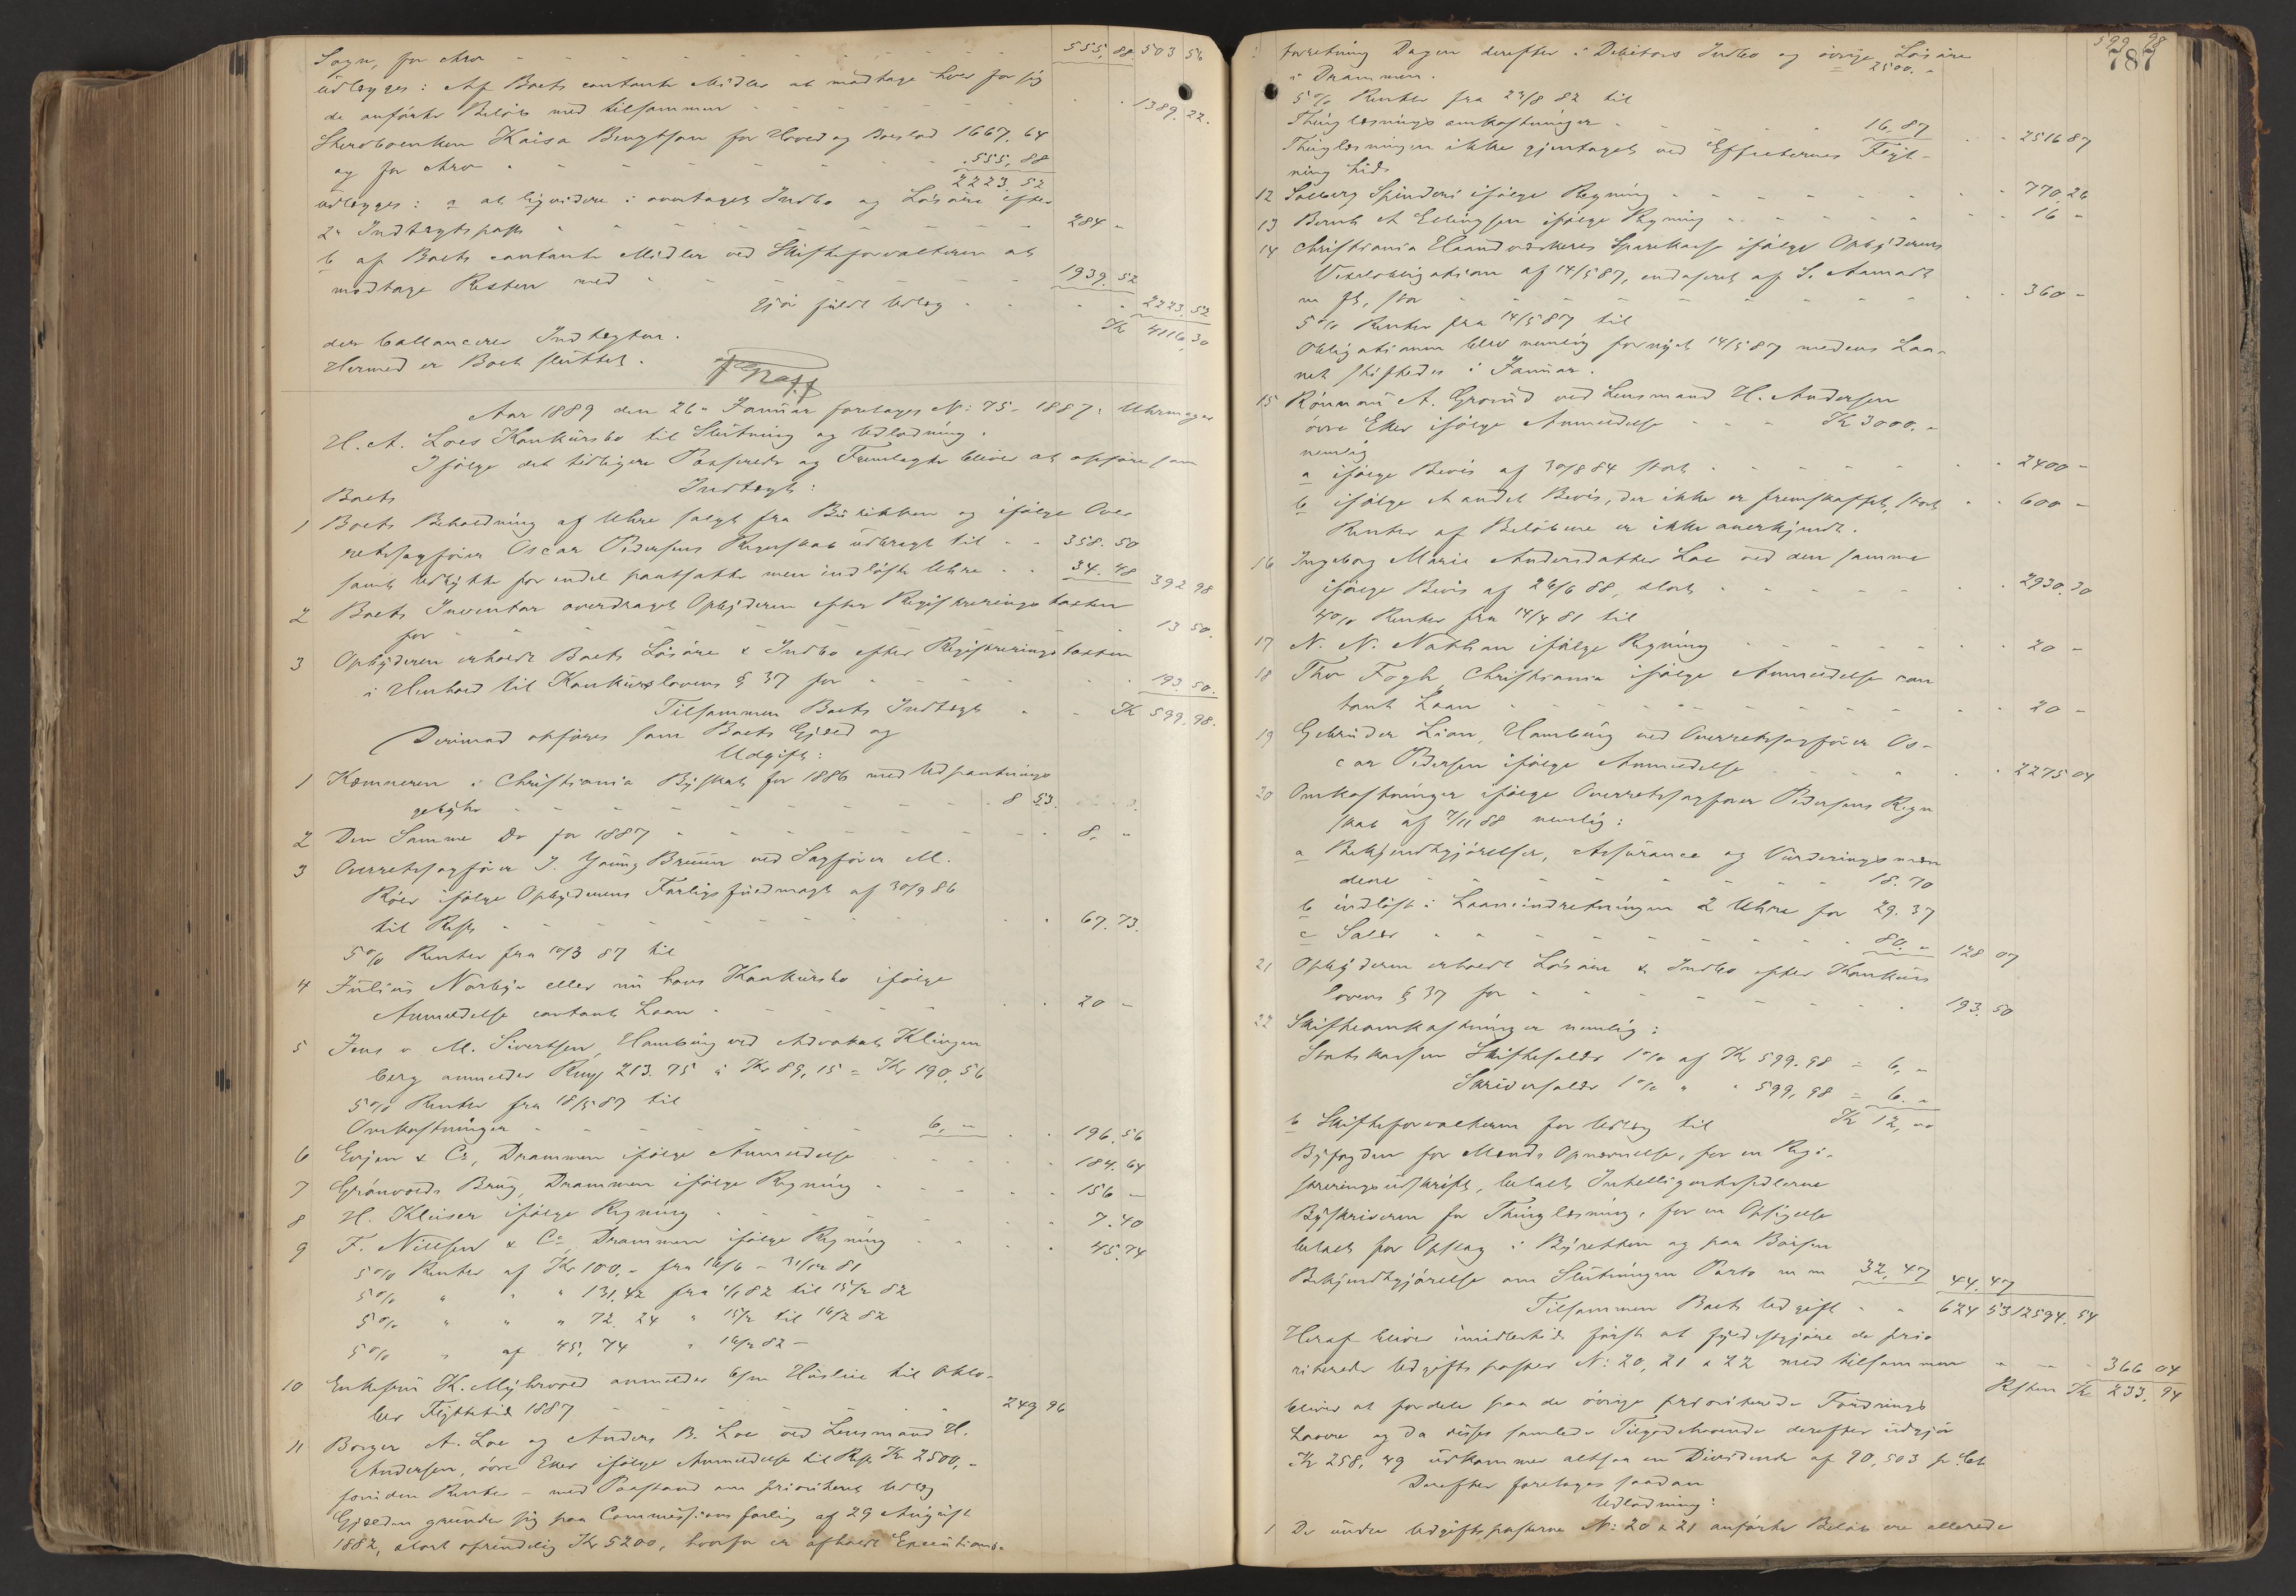 Sogn, for Arv - - - 555,88. 503 56
udlægges: Af Boets contante Midler at modtage hver for sig
de anførte Beløb med tilsammen - - - 1389.22.
Skræderenken Kaisa Bengtson for Hoved og Boeslod 1667.64
og for Arv - - - 555,88
2223.52
udlægges: a at liqvidere i overtaget Indbo og Løsøre efter
2n Indtægtspost - - - 284 "
b af Boets contante Midler ved Skifteforvalteren at
modtage Resten med - - - 1939.52
gjør fuldt Udlæg - - - 2223.52
der ballancerer Indtægten. Kr 4116,30
Hermed er Boet sluttet.
Aar 1889 den 26n Januar foretages N: 75 - 1887: Uhrmager
H. A. Loes Konkursbo til Slutning og Udlodning.
Ifølge det tidligere Passerede og Fremlagte bliver at opføre som
Boets Indtægt:
1 Boets Beholdning af Uhre solgt fra Butikken og ifølge Over
retssagfører Oscar Pedersens Regnskab udbragt til - - 358.50
samt Udbytte for endel pantsatte men indløste Uhre - - 34.48 392 98
2 Boets Inventar overdraget Opbyderen efter Registreringstaxten
for - - - 13 50.
3 Opbyderen erholdt Boets Løsøre & Indbo efter Registreringstaxten
i Henhold til Konkurslovens § 37 for - - - 193.50.
Tilsammen Boets Indtægt - - Kr 599.98.
Derimod opføres som Boets Gjæld og
Udgift:
1 Kæmneren i Christiania Byskat for 1886 med Udpantnings
gebyhr - - - 8 53.
2 Den Samme Do for 1887 - - - 8. "
3 Overretssagfører J. Young Bruun ved Sagfører M.
Röer ifølge Opbyderens Forligsfuldmagt af 30/9 86
til Rest - - - 67.73.
5% Renter fra 10/3 87 til
4 Julius Norbye eller nu hans Konkursbo ifølge
Anmeldelse contant Laan - - - 20 -
5 Jens v. M. Sivertsen, Hamburg ved Advokat Klingen
berg anmelder Rmk 213.75 à Kr 89,15 = Kr 190,56
5% Renter fra 18/5 87 til
Omkostninger - - - 6, " - - 196.56
6 Enger & Co, Drammen ifølge Anmeldelse - - - 184.64
7 Grønvolds Brug, Drammen ifølge Regning - - - 156 -
8 H. Kleiser ifølge Regning - - - 7.40
9 F. Nielsen & Co Drammen ifølge Regning - - - 45.74
5% Renter af Kr 100, - fra 16/6 - 31/12 81
5% " " " 131.42 fra 1/1 82 til 15/2 82
5% " " " 72.24 " 15/2 til 16/2 82
5% " af 45,74 " 16/2 82 -
10 Enkefru K. Myhrvold anmelder 6/m Husleie til Okto-
ber Flyttetid 1887 - - - 249 96
11 Borger A. Loe og Anders B. Loe ved Lensmand H.
Andersen, øvre Eker ifølge Anmeldelse til Rest Kr 2500, -
foruden Renter - med Paastand om prioriteret Udlæg
Gjælden grunder sig paa Commissionsforlig af 29 August
1882, stort oprindelig Kr 5200, hvorfor er afholdt Executions-
599 98
787
forretning Dagen derefter i Debitors Indbo og øvrige Løsøre
i Drammen. = 2500. -
5% Renter fra 29/8 82 til
Thinglæsningsomkostninger - - - 16,87 - - 2516 87
Thinglæsningen ikke gjentaget ved Effecternes Flyt-
ning hid.
12 Solberg Spinderi ifølge Regning - - - 770.26
13 Bernt A Ellingsen ifølge Regning - - - 16 -
14 Christiania Haandværkeres Sparekasse ifølge Opbyderens
Vexelobligation af 14/5 87, endosseret af S. Aamodt
m fl, stor - - - 360 -
5% Renter fra 14/5 87 til
Obligationen blev nemlig fornyet 14/5 87 medens Laa-
net stiftedes i Januar.
15 Rönnaug A. Grorud ved Lensmand H. Andersen
øvre Eker ifølge Anmeldelse - - - Kr 3000. -
nemlig
a ifølge Bevis af 30/8 84 stort - - - 2400 -
b ifølge et andet Bevis, der ikke er fremskaffet, stort - - 600 -
Renter af Beløbene er ikke anerkjendt.
16 Ingeborg Marie Andersdatter Loe ved den samme
ifølge Bevis af 26/6 88, stort - - - 2930.30
4% Renter fra 14/4 81 til
17 N. N. Nathan ifølge Regning - - - 20 -
18 Thv Fogh, Christiania ifølge Anmeldelse con
tant Laan - - - 20 -
19 Gebrüder Lion, Hamburg ved Overretssagfører Os-
car Pedersen ifølge Anmeldelse - - - 2275 04
20 Omkostninger ifølge Overretssagfører Pedersens Regn
skab af 7/11 88 nemlig:
a Bekjendtgjørelser, Assurance og Vurderingsmæn
dene - - - 18.70
b indløst i Laaneindretningen 2 Uhre for 29.37
c Salær - - - 80. " 128 07
21 Opbyderen erholdt Løsøre & Indbo efter Konkurs
lovens § 37 for - - - 193.50
22 Skifteomkostninger nemlig:
Statskassen Skiftesalær 1% af Kr 599.98 = 6, "
Skriversalær 1% " " 599,98 = 6. "
Kr 12, "
b Skifteforvalteren for Udlæg til
Byfogden for Mænds Opnævnelse, for en Regi-
streringsudskrift, betalt Intelligentssedlerne
Byskriveren for Thinglæsning, for en Opsigelse
betalt for Opslag i Byretten og paa Børsen
Bekjendtgjørelse om Slutningen Porto m m 32,47 44.47
Tilsammen Boets Udgift - - 624 53 12594.54
Heraf bliver imidlertid først at fyldestgjøre de prio
riterede Udgiftsposter N: 20, 21 & 22 med tilsammen - - - 366 04
Resten Kr 233.94
bliver at fordele paa de øvrige prioriterede Fordrings
havere og da disses samlede Tilgodehavende derefter udgjør
Kr 258,49 udkommer altsaa en Dividende af 90,503 pr Ct
Derefter foretages saadan
Udlodning:
1 De under Udgiftsposterne N: 20 & 21 anførte Beløb ere allerede